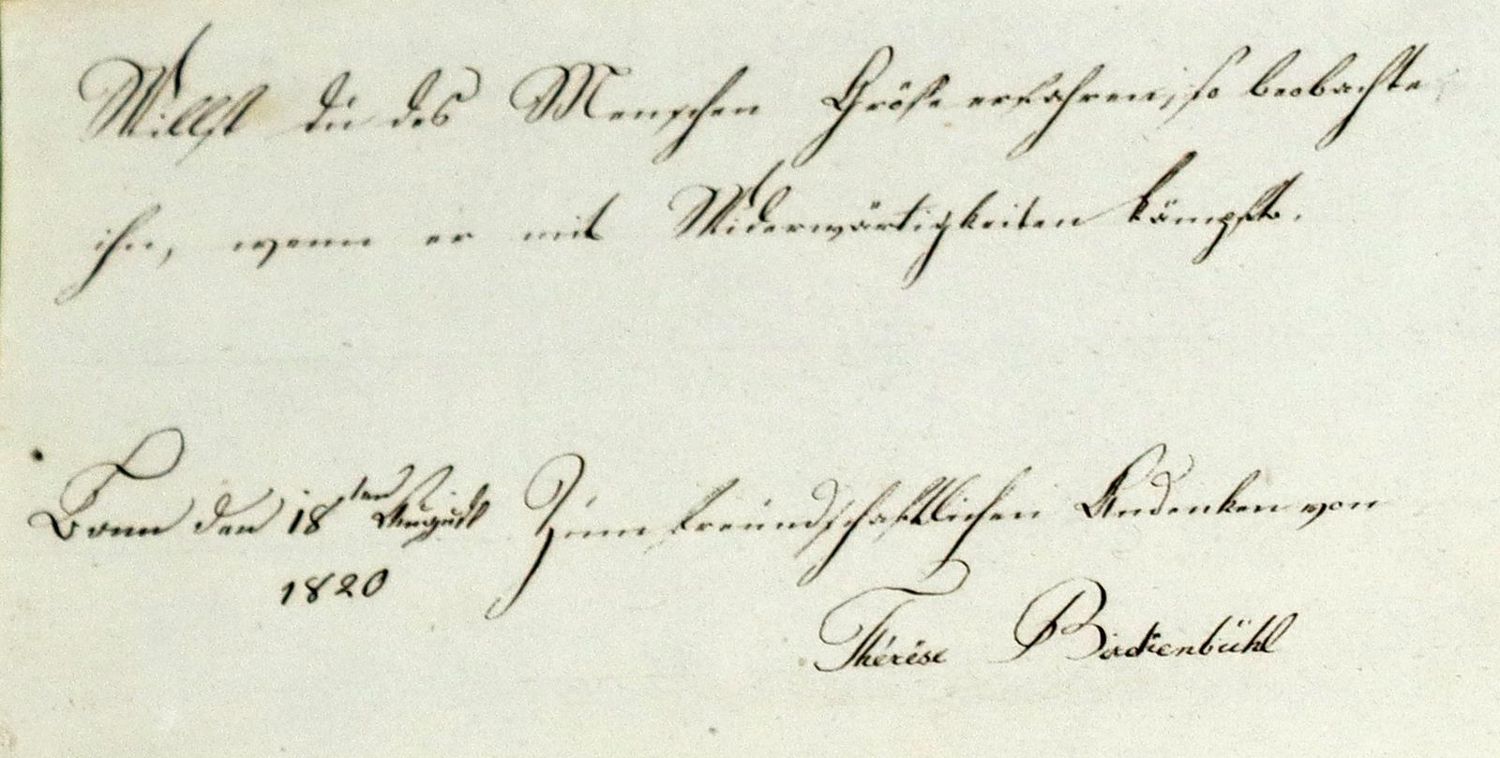 Willst du des Menschen Größe erfahren, so beobachte
ihn, wenn er mit Widerwärtigkeiten kämpft.
Bonn den 18ten August Zum freundschaftlichen Andenken von
1820
Thérèse